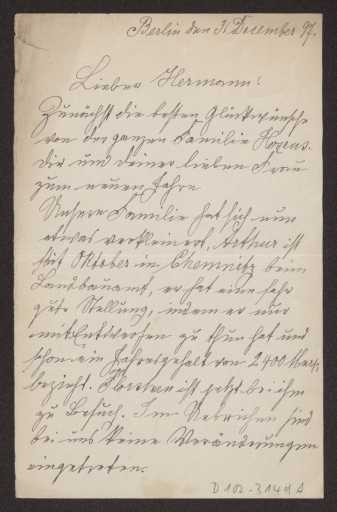 Berlin den 31 Dezember 97.
Lieber Hermann!
Zunächst die besten Glückwünsche
von der ganzen Familie
dir und deiner lieben Frau
zum neuen Jahre
Unsere Familie hat sich nun
etwas verkleinert, Arthur ist
seit Oktober in Chemnitz beim
Landbauamt, er hat eine sehr
gute Stellung, indem er nur
mit Entwerfen zu thun hat und
schon ein Jahresgehalt von 2400 Mark
bezieht. ist jetzt bei ihm
zu Besuch. Im Uebrigen sind
bei uns keine Veränderungen
eingetreten.